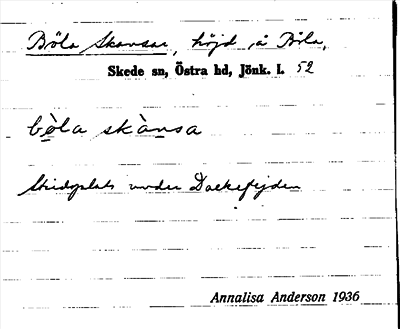 Böla Skansar, höjd å Böla,
Skede sn, Östra hd, Jönk. l. 52
bòla skànsa
Stridsplats under Dackefejden
Annalisa Anderson 1936